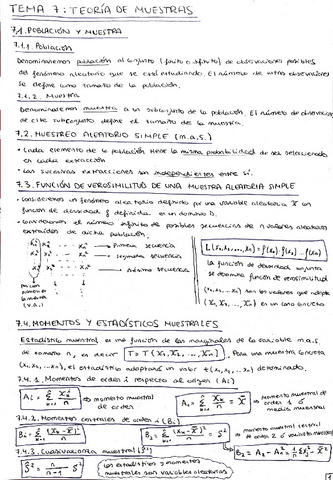 TEMA 7: TEORÍA DE MUESTRAS
7.1. POBLACIÓN Y MUESTRA
7.1.1. Población
Denominaremos población al conjunto (finito o infinito) de observaciones posibles
del fenómeno aleatorio que se está estudiando. El número de observaciones
se define como tamaño de la población.
7.1.2. Muestra
Denominaremos muestra a un subconjunto de la población. El número de observaciones
de este subconjunto define el tamaño de la muestra.
7.2. MUESTREO ALEATORIO SIMPLE (m.a.s.)
• Cada elemento de la población tiene la misma probabilidad de ser seleccionado
en cada extracción
• Las sucesivas extracciones son independientes entre sí.
7.3. FUNCIÓN DE VEROSIMILITUD DE UNA MUESTRA ALEATORIA SIMPLE
• Consideremos un fenómeno aleatorio definido por una variable aleatoria X con
función de densidad f definida en un dominio D.
• Consideremos el número infinito de posibles secuencias de n valores aleatorios
extraídos de dicha población.
→ Primera secuencia
→ Segunda secuencia
→ n-ésima secuencia
L(x₁, x₂, ..., xₙ) = f(x₁) · f(x₂) ... f(xₙ)
la función de densidad conjunta
se denomina función de verosimilitud
(x₁, x₂, ..., xₙ) son los valores que adopta
(X₁, X₂, ..., Xₙ) en un caso concreto
(v.a.)
7.4. MOMENTOS Y ESTADÍSTICOS MUESTRALES
Estadístico muestral es una función de las marginales de la variable m.a.s.
de tamaño n, es decir T = T(X₁, X₂, ..., Xₙ). Para una muestra concreta
(x₁, x₂, ..., xₙ), el estadístico adoptará un valor t(x₁, x₂, ..., xₙ) determinado.
7.4.1. Momentos de orden i respecto al origen (Ai)
momento muestral
de orden
momento muestral de
orden 1 ó
media muestral
7.4.2. Momentos centrales de orden i (Bi)
momento muestral central
de orden 2 ó varianza muestral
7.4.3. Cuasivarianza muestral
Los estadísticos y momentos
muestrales son variables aleatorias